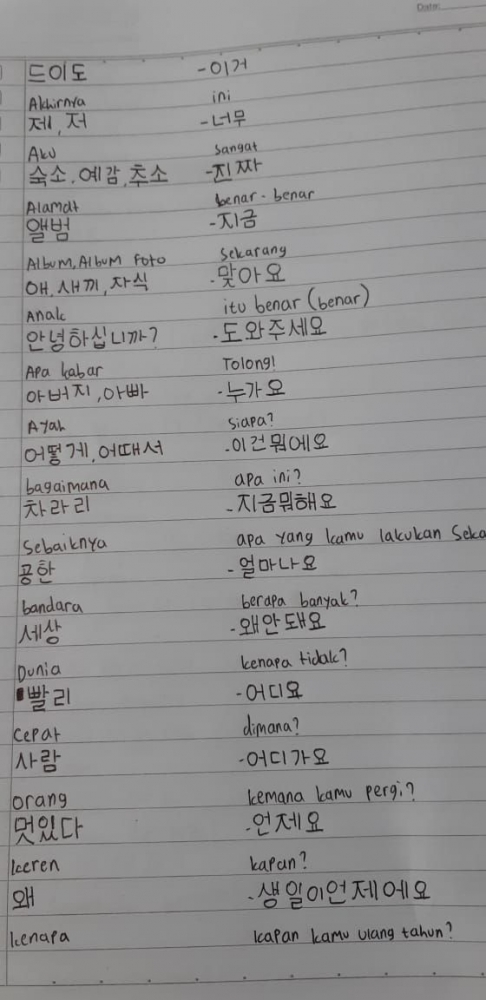 Date:
드이도 -이거
Akhirnya ini
제, 저 -너무
Aku sangat
숙소, 예감, 추소 -진짜
Alamat benar-benar
앨범 -지금
Album, Album foto sekarang
애, 새끼, 자식 -맞아요
Anak itu benar (benar)
안녕하십니까? -도와주세요
Apa kabar Tolong!
아버지, 아빠 -누가요
Ayah siapa?
어떻게, 어때서 -이건뭐에요
bagaimana apa ini?
차라리 -지금뭐해요
Sebaiknya apa yang kamu lakukan Seka
공한 -얼마나요
bandara berapa banyak?
세상 -왜안돼요
Dunia kenapa tidak?
빨리 -어디요
cepat dimana?
사람 -어디가요
orang kemana kamu pergi?
멋있다 -언제요
keren kapan?
왜 -생일이언제에요
kenapa kapan kamu ulang tahun?